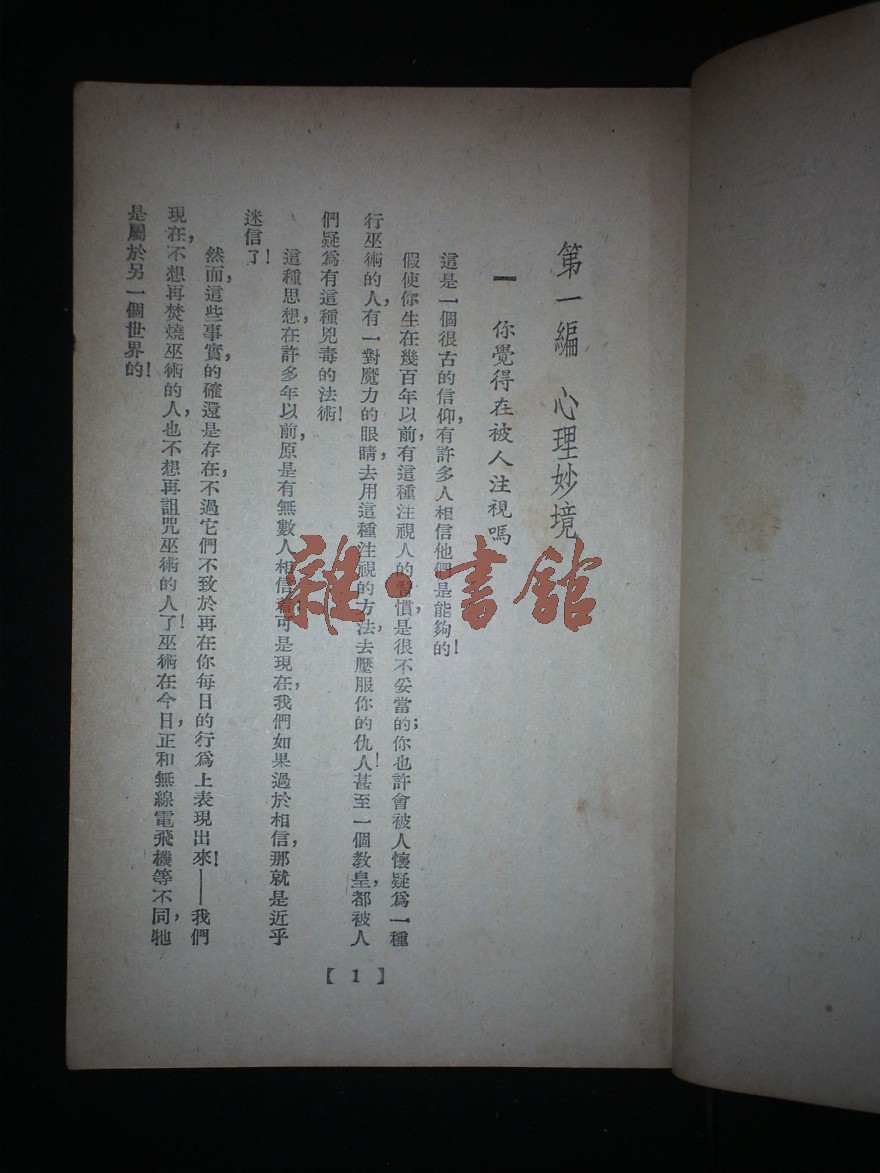 第一編　心理妙境
一　你覺得在被人注視嗎
這是一個很古的信仰，有許多人相信他們是能夠的！
假使你生在幾百年以前，有這種注視人的習慣，是很不妥當的；你也許會被人懷疑爲一種
行巫術的人，有一對魔力的眼睛，去用這種注視的方法，去壓服你的仇人！甚至一個教皇，都被人
們疑爲有這種兇毒的法術！
這種思想在許多年以前，原是有無數人相信着，可是現在，我們如果過於相信，那就是近乎
迷信了！
然而，這些事實的確還是存在，不過它們不致於再在你每日的行爲上表現出來！——我們
現在，不想再焚燒巫術的人，也不想再詛咒巫術的人了！巫術在今日，正和無線電飛機等不同，牠
是屬於另一個世界的！
【1】
雜·書館